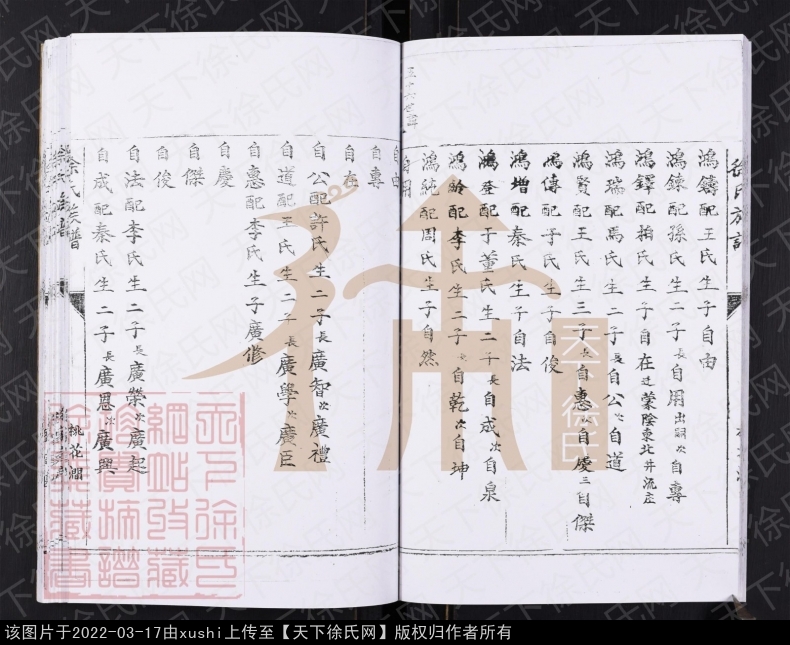 徐氏族譜
鴻鑄配王氏生子自由
鴻鍊配孫氏生二子長自用出嗣次自專
鴻鐸配 氏生子自在遷蒙陰東北井流庄
鴻瑞配馬氏生二子長自公次自道
鴻賢配王氏生三子長自惠次自慶三自傑
鴻傳配于氏生子自俊
鴻增配秦氏生子自法
鴻奎配于董氏生二子長自成次自泉
鴻齡配李氏生二子長自乾次自坤
鴻統配周氏生子自然
自用
自由
自專
自在
自公配許氏生二子長廣智次廣禮
自道配王氏生二子長廣學次廣臣
自惠配李氏生子廣修
自慶
自傑
自俊
自法配李氏生二子長廣榮次廣起
自成配秦氏生二子長廣恩次廣興
徐氏族譜
桃花澗
天下徐氏
网站收藏
天下徐氏网
该图片于2022-03-17由xushi上传至【天下徐氏网】版权归作者所有